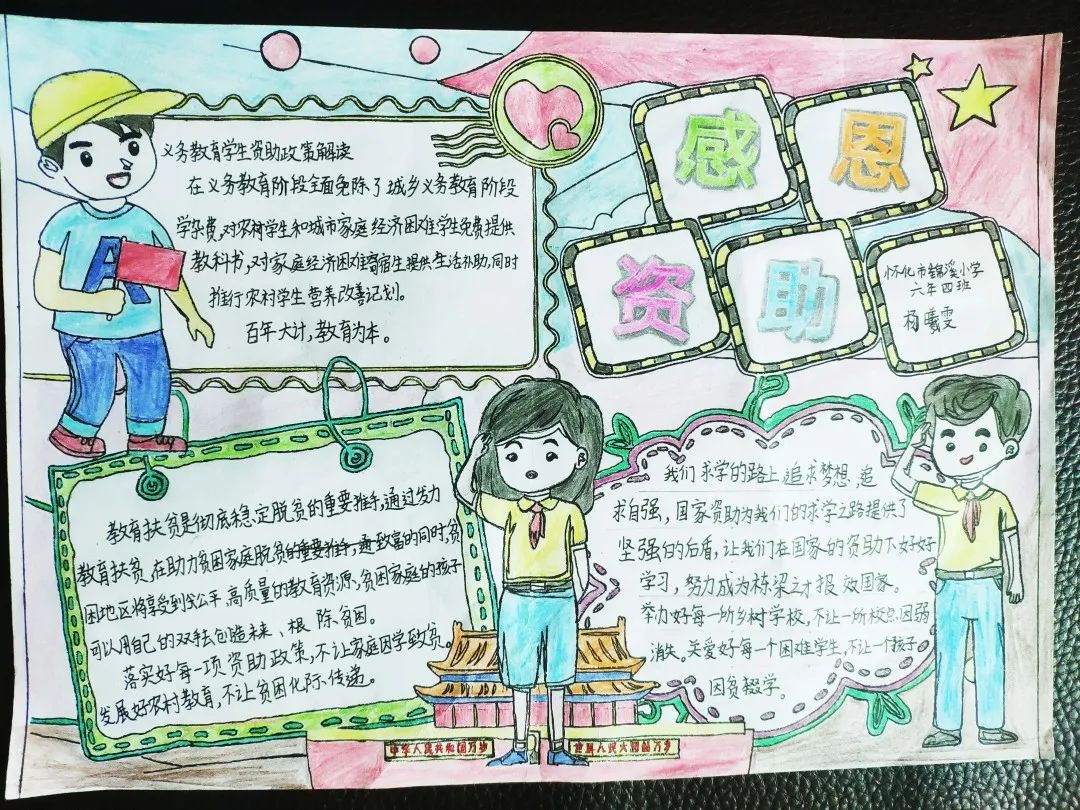 感恩
资助
怀化市锦溪小学
六年四班
杨曦雯
义务教育学生资助政策解读
在义务教育阶段全面免除了城乡义务教育阶段
学杂费,对农村学生和城市家庭经济困难学生免费提供
教科书,对家庭经济困难寄宿生提供生活补助,同时
推行农村学生营养改善记划。
百年大计,教育为本。
教育扶贫是彻底稳定脱贫的重要推手,通过发力
教育扶贫,在助力贫困家庭脱贫致富的同时,贫
困地区将享受到公平、高质量的教育资源,贫困家庭的孩子
可以用自己的双手创造未来、根除贫困。
落实好每一项资助政策,不让家庭因学致贫。
发展好农村教育,不让贫困代际传递。
我们求学的路上,追求梦想,追
求自强,国家资助为我们的求学之路提供了
坚强的后盾,让我们在国家的资助下好好
学习,努力成为栋梁之才报效国家。
举办好每一所乡村学校,不让一所校点因弱
消失。关爱好每一个困难学生,不让一个孩子
因贫辍学。
中华人民共和国万岁
世界人民大团结万岁